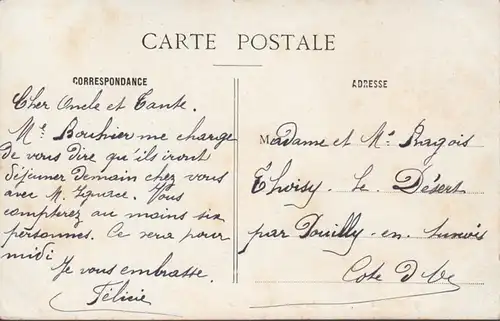 CARTE POSTALE
CORRESPONDANCE
Cher Oncle et Tante.
Me Bouhier me charge
de vous dire qu'ils iront
déjeuner demain chez vous
avec M. Ignace. Vous
compterez au moins six
personnes. Ce sera pour
midi
Je vous embrasse.
Félicie
ADRESSE
Madame et Mr Ragois
Thoisy le Désert
par Pouilly-en-Auxois
Cote d'Or